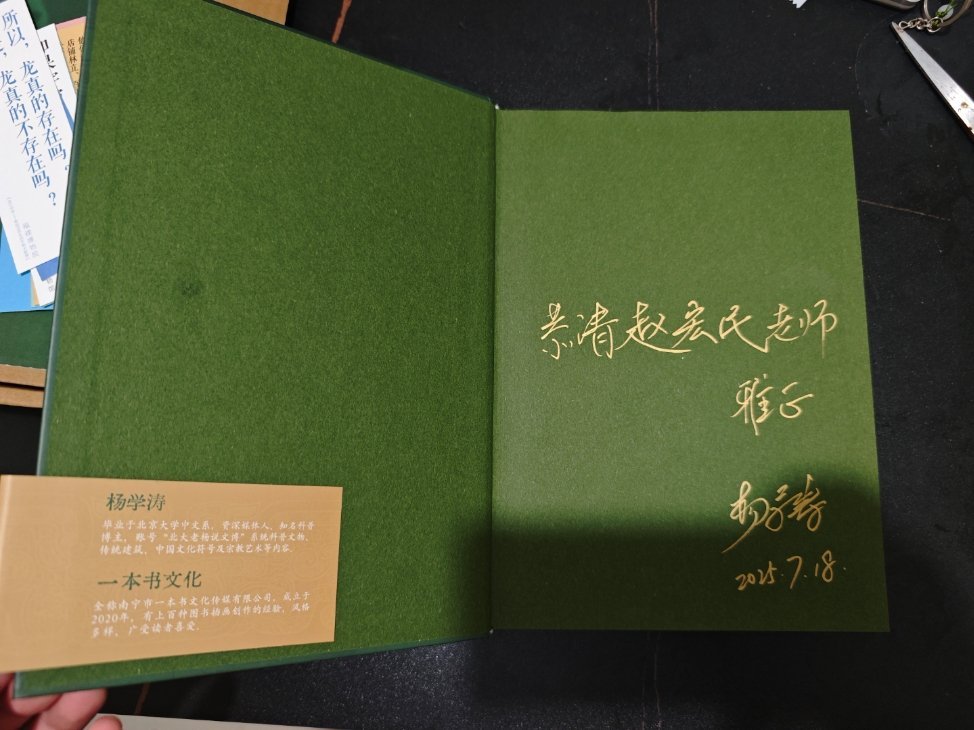 所以，龙真的存在吗？
龙真的不存在吗？
恭请赵宏民老师
雅正
杨学涛
2025.7.18.
杨学涛
毕业于北京大学中文系，资深媒体人，知名科普
博主，账号“北大老杨说文博”系统科普文物、
传统建筑、中国文化符号及宗教艺术等内容。
一本书文化
全称南宁市一本书文化传媒有限公司，成立于
2020年，有上百种图书插画创作的经验，风格
多样、广受读者喜爱。